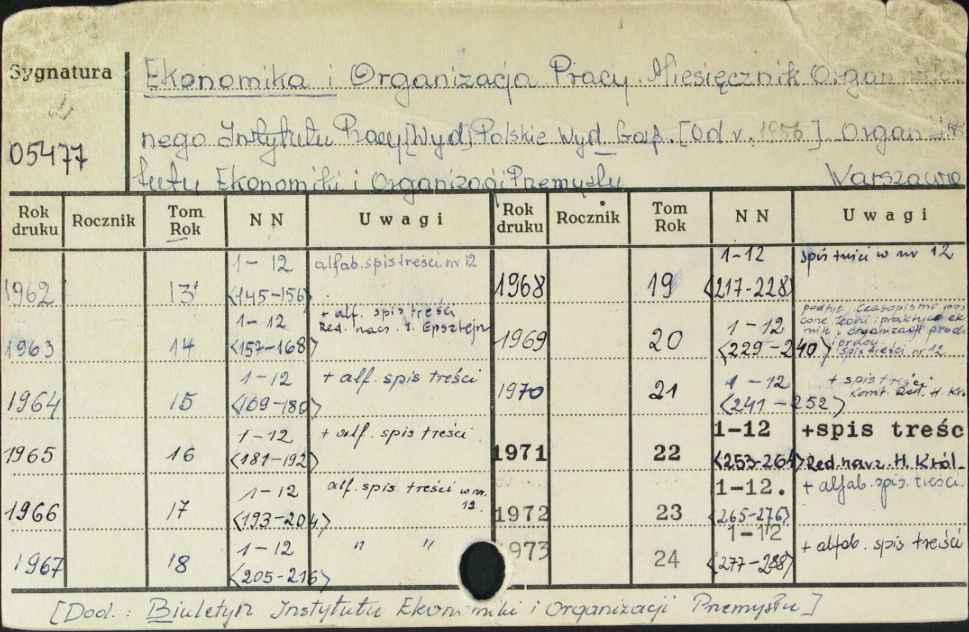 Sygnatura
05477
Ekonomika i Organizacja Pracy. Miesięcznik Organ
nego Instytutu Pracy [Wyd.] Polskie Wyd. Gosp. [Od v. 1956] Organ
tutu Ekonomiki i Organizacji Przemysłu Warszawa
Rok druku Rocznik Tom Rok NN Uwagi Rok druku Rocznik Tom Rok NN Uwagi
1962 13 1-12 <145-156> alfab. spis treści nr 12 1968 19 1-12 <217-228> spis treści w nr 12
1963 14 1-12 <157-168> + alf. spis treści Red. nacz. J. Epsztejn 1969 20 1-12 <229-240> podtyt. Czasopismo i organizacji i pracy spis treści nr 12
1964 15 1-12 <169-180> + alf. spis treści 1970 21 1-12 <241-252> + spis treści Komit. Red. H. Kró
1965 16 1-12 <181-192> + alf. spis treści 1971 22 1-12 <253-264> +spis treśc Red. nacz. H. Król
1966 17 1-12 <193-204> alf. spis treści w nr. 12 1972 23 1-12. <265-276> + alfab. spis treści
1967 18 1-12 <205-216> " " 1973 24 1-12 <277-288> + alfab. spis treści
[Dod.: Biuletyn Instytutu Ekonomiki i Organizacji Przemysłu]